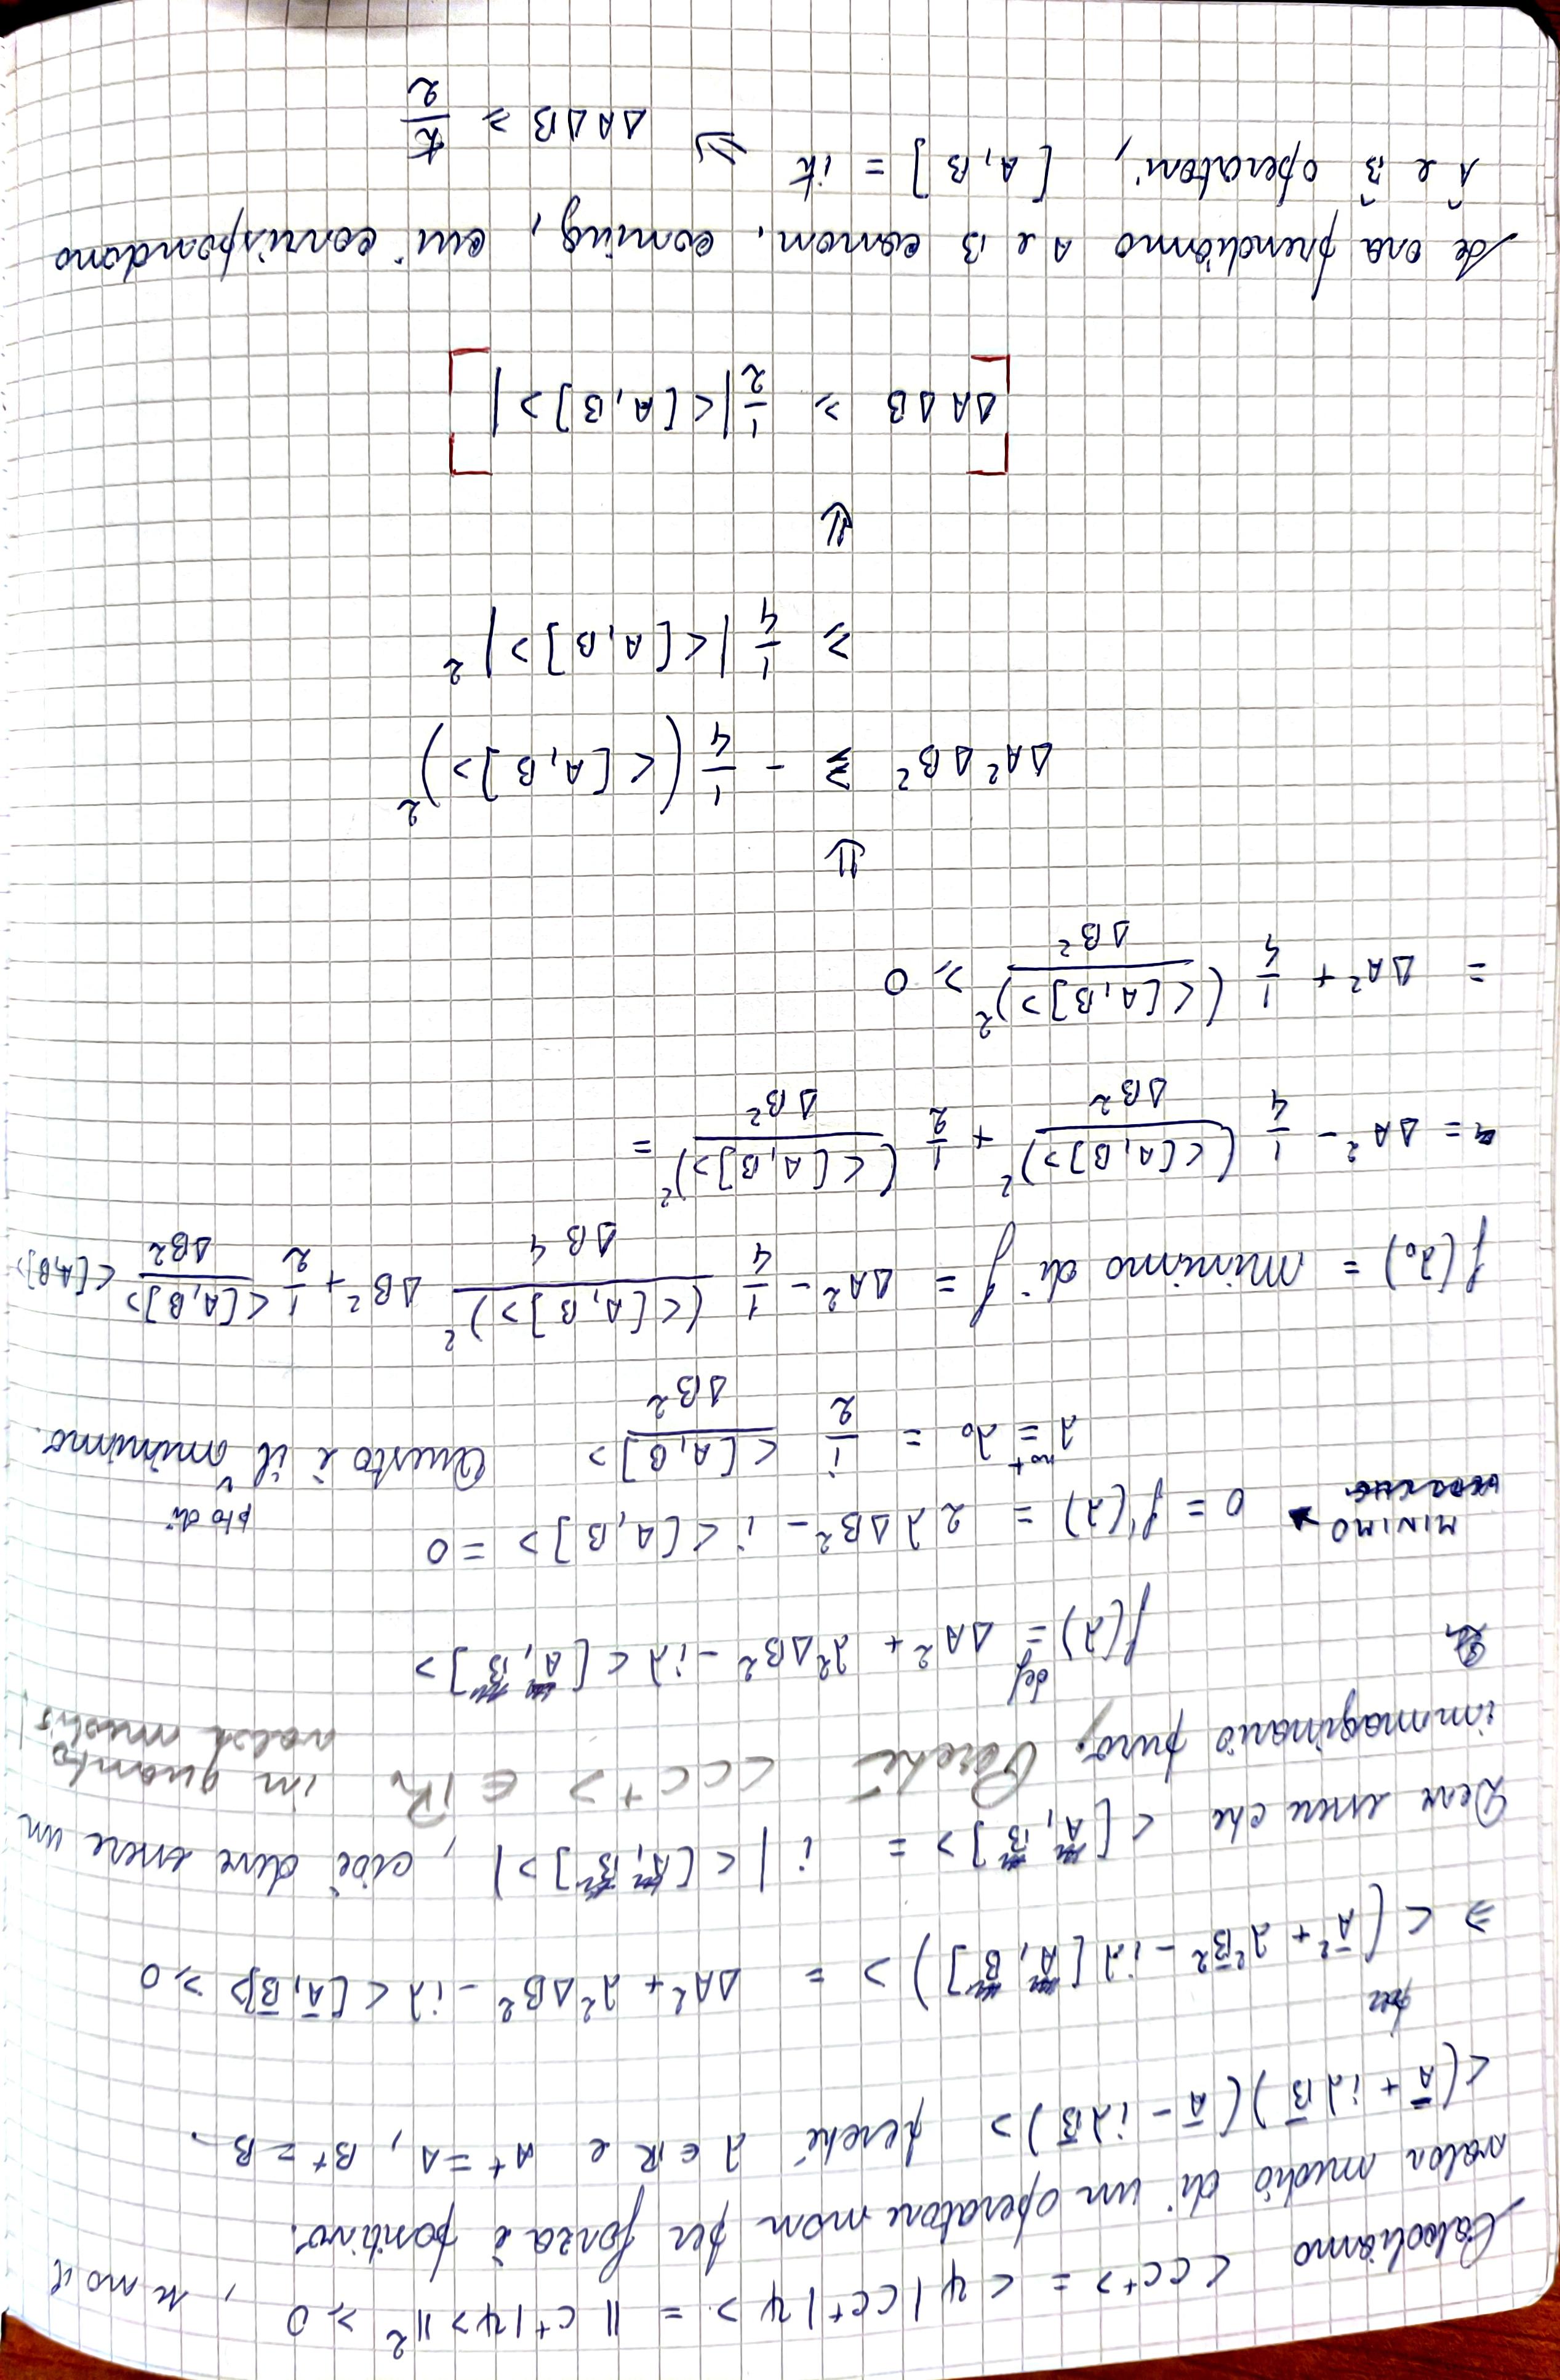 Calcoliamo <CC⁺> = <ψ|CC⁺|ψ> = ||C⁺|ψ>||² ≥ 0, se no il
valor medio di un operatore non per forza è positivo.
<(Ā + iλB̄)(Ā - iλB̄)> perché λ∈ℝ e A⁺=A, B⁺=B.
⇒ <(Ā² + λ²B̄² - iλ[A,B])> = ΔA² + λ²ΔB² - iλ<[Ā,B̄]> ≥ 0
per
Deve essere che <[A,B]> = i|<[A,B]>|, cioè deve essere un
immaginario puro. Perché <CC⁺> ∈ ℝ in quanto
valor medio
f(λ) =def ΔA² + λ²ΔB² - iλ<[A,B]>
MINIMO → 0 = f'(λ) = 2λΔB² - i<[A,B]> = 0
λ =not λ₀ = i/2 <[A,B]>/ΔB² Questo è il pto di minimo.
f(λ₀) = minimo di f = ΔA² - 1/4 (<[A,B]>)²/ΔB⁴ ΔB² + 1/2 <[A,B]>/ΔB² <[A,B]>
= ΔA² - 1/4 (<[A,B]>)²/ΔB² + 1/2 (<[A,B]>)²/ΔB² =
= ΔA² + 1/4 (<[A,B]>)²/ΔB² ≥ 0
⇓
ΔA²ΔB² ≥ - 1/4 (<[A,B]>)²
≥ 1/4 |<[A,B]>|²
⇓
ΔAΔB ≥ 1/2 |<[A,B]>|
Se ora prendiamo A e B canon. coniug, cui corrispondono
Â e B̂ operatori, [A,B] = iℏ ⇒ ΔAΔB ≥ ℏ/2